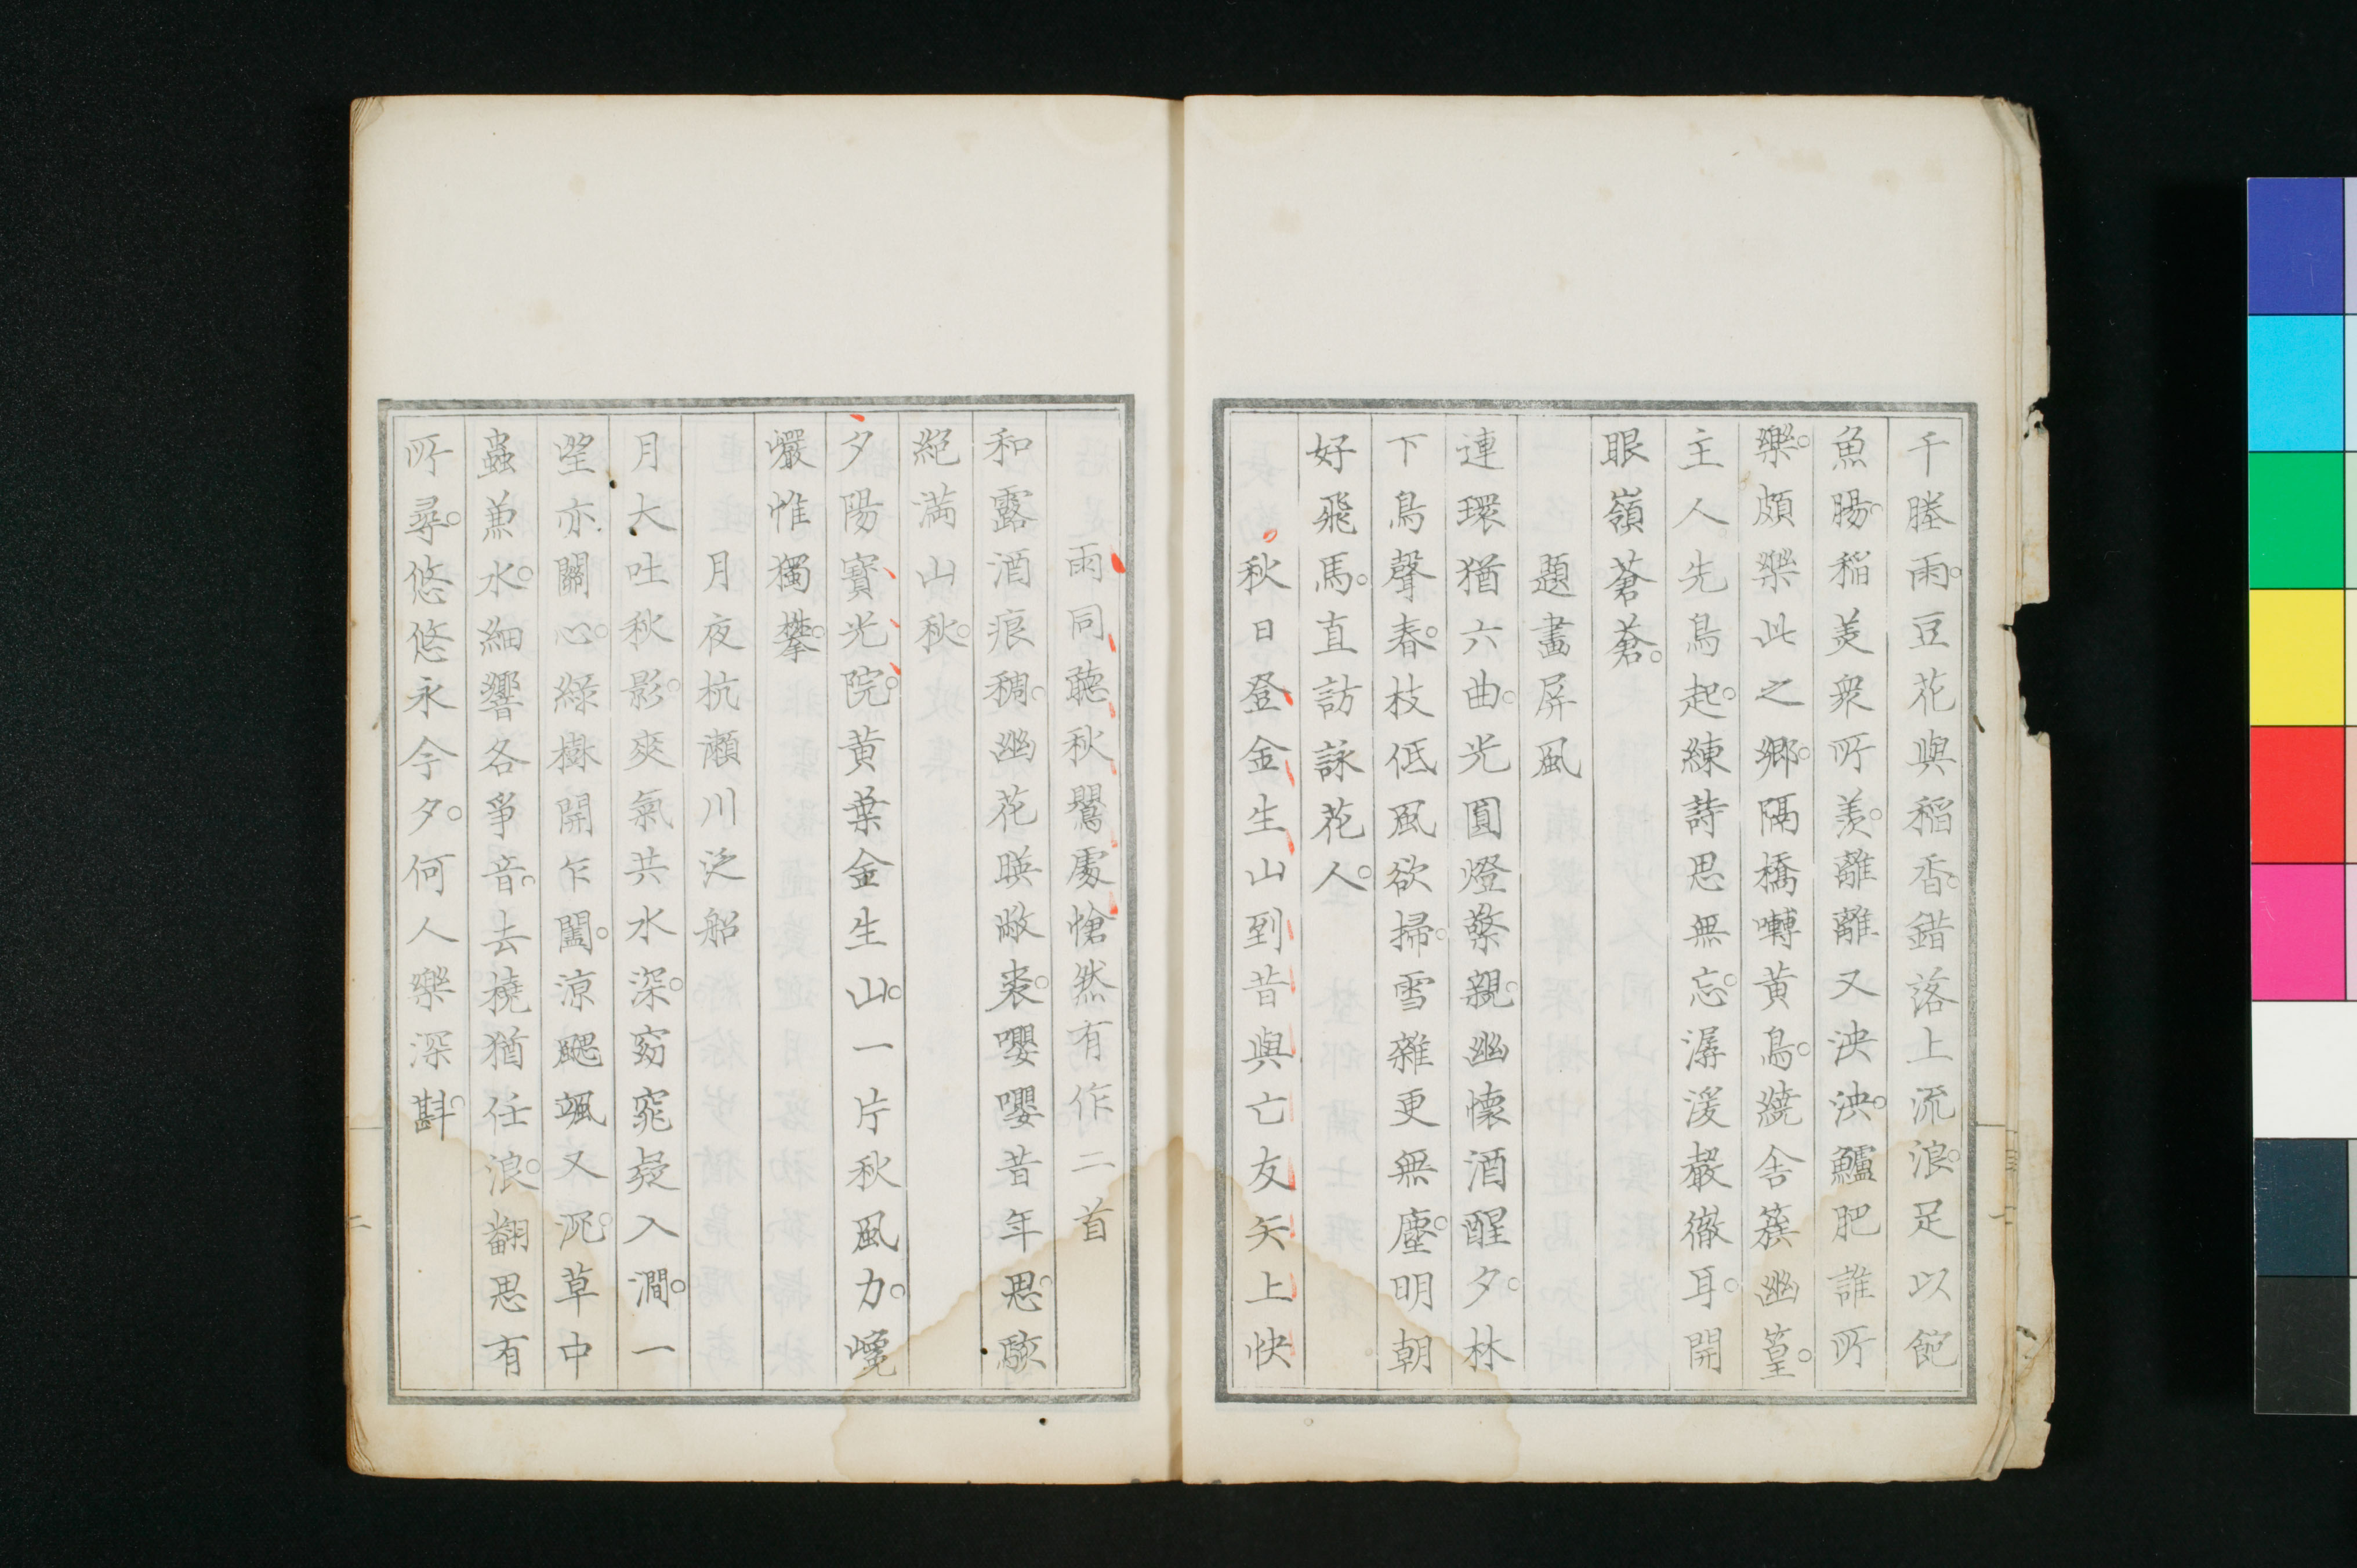 千塍雨豆花與稻香錯落上流浪足以飽
魚腸稲美衆所羨離離又泱泱鱸肥誰所
樂頗樂此之郷隔橋囀黄鳥繞舎簇幽篁
主人先鳥起練詩思無忘潺湲嚴徹耳開
眼嶺蒼蒼
題畫屏風
連環猶六曲光圓燈檠親幽懷酒醒夕林
下鳥聲春枝低風欲掃雪雜更無塵明朝
好飛馬直訪詠花人
秋日登金生山到昔與亡友矢上快
雨同聽秋鸎處愴然有作二首
和露酒痕稠幽花暎敝裘嚶嚶昔年思歇
絕滿山秋
夕陽寶光院黄葉金生山一片秋風力巉
巖惟獨攀
月夜杭瀬川泛船
月大吐秋影爽氣共水深窈窕疑入澗一
望亦關心緑樹開乍闔涼颸颯又沉草中
蟲兼水細響各爭音去橈猶任浪翻思有
所尋悠悠永今夕何人樂深斟
二